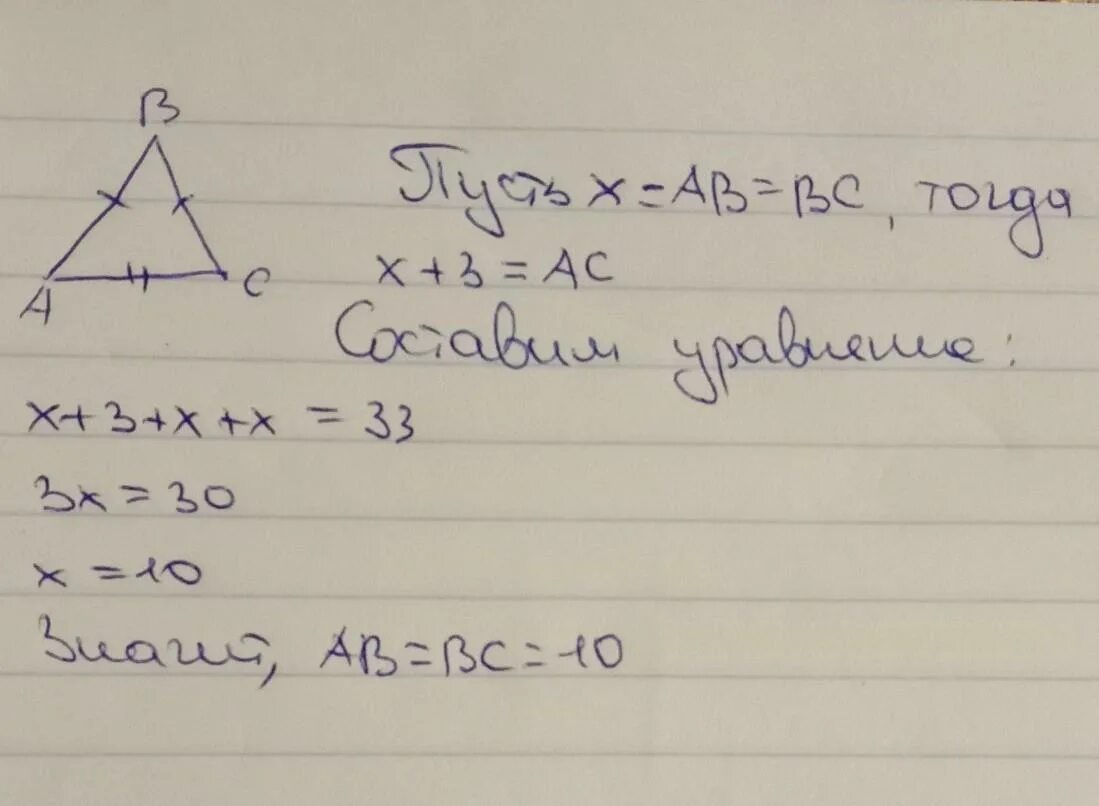 B
A
C
Пусть x = AB = BC, тогда
x + 3 = AC
Составим уравнение:
x + 3 + x + x = 33
3x = 30
x = 10
Значит, AB = BC = 10